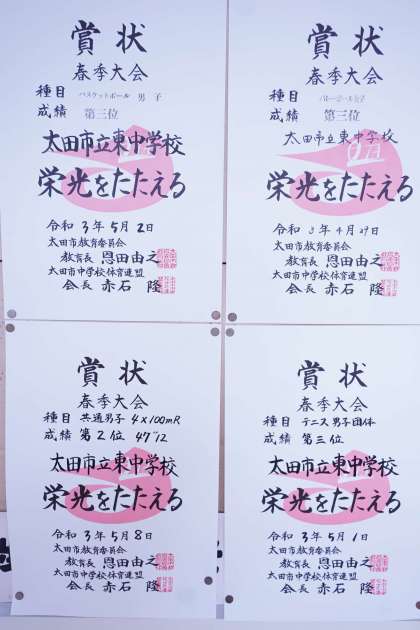 賞状
春季大会
種目 バスケットボール 男子
成績 第三位
太田市立東中学校
栄光をたたえる
令和 3年 5月 2日
太田市教育委員会
教育長 恩田由之
太田市中学校体育連盟
会長 赤石 隆
賞状
春季大会
種目 バレーボール女子
成績 第三位
太田市立東中学校
栄光をたたえる
令和 3年 4月 29日
太田市教育委員会
教育長 恩田由之
太田市中学校体育連盟
会長 赤石 隆
賞状
春季大会
種目 共通男子 4×100mR
成績 第2位 47"12
太田市立東中学校
栄光をたたえる
令和 3年 5月 8日
太田市教育委員会
教育長 恩田由之
太田市中学校体育連盟
会長 赤石 隆
賞状
春季大会
種目 テニス 男子団体
成績 第三位
太田市立東中学校
栄光をたたえる
令和 3年 5月 1日
太田市教育委員会
教育長 恩田由之
太田市中学校体育連盟
会長 赤石 隆